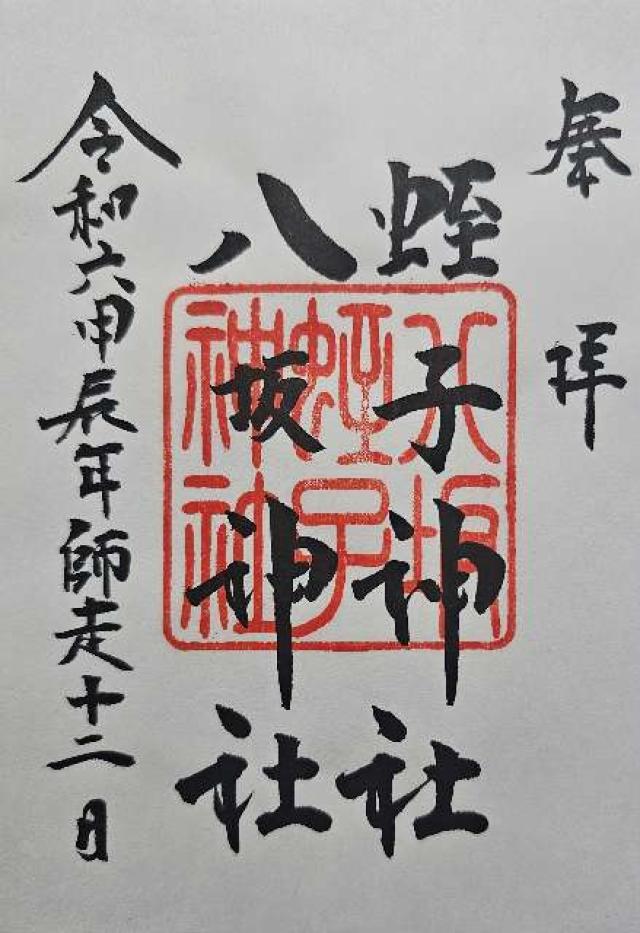 奉拝
蛭子神社
八坂神社
八坂
蛭子
神社
令和六甲辰年師走十二日